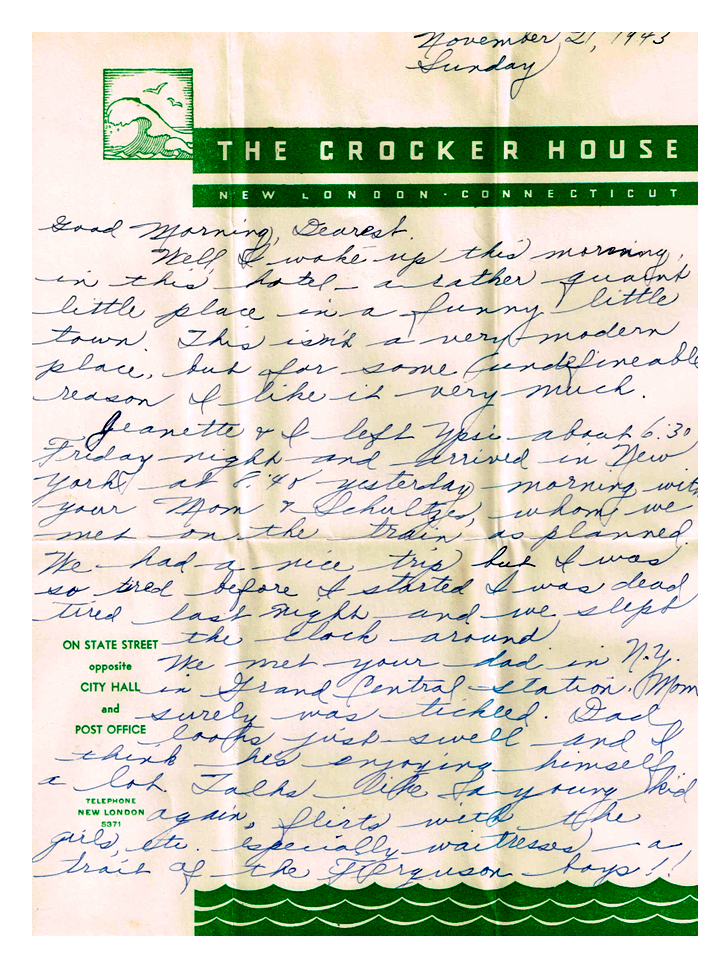 November 21, 1943
Sunday
THE CROCKER HOUSE
NEW LONDON · CONNECTICUT
Good Morning, Dearest.
Well, I woke up this morning,
in this hotel – a rather quaint
little place in a funny little
town. This isn't a very modern
place, but for some (undefineable
reason I like it very much.
Jeanette & I left Ypsi about 6:30
Friday night and arrived in New
York at 8:40 yesterday morning with
your Mom & Schultzes, whom we
met on the train as planned.
We had a nice trip but I was
so tired before I started I was dead
tired last night and we slept
the clock around
We met your dad in N.Y.
in Grand Central Station. Mom
surely was tickled. Dad
looks just swell and I
think he's enjoying himself
a lot. Talks like a young kid
again, flirts with the
girls, etc. especially waitresses) – a
trait of the Ferguson boys!!
ON STATE STREET
opposite
CITY HALL
and
POST OFFICE
TELEPHONE
NEW LONDON
5371